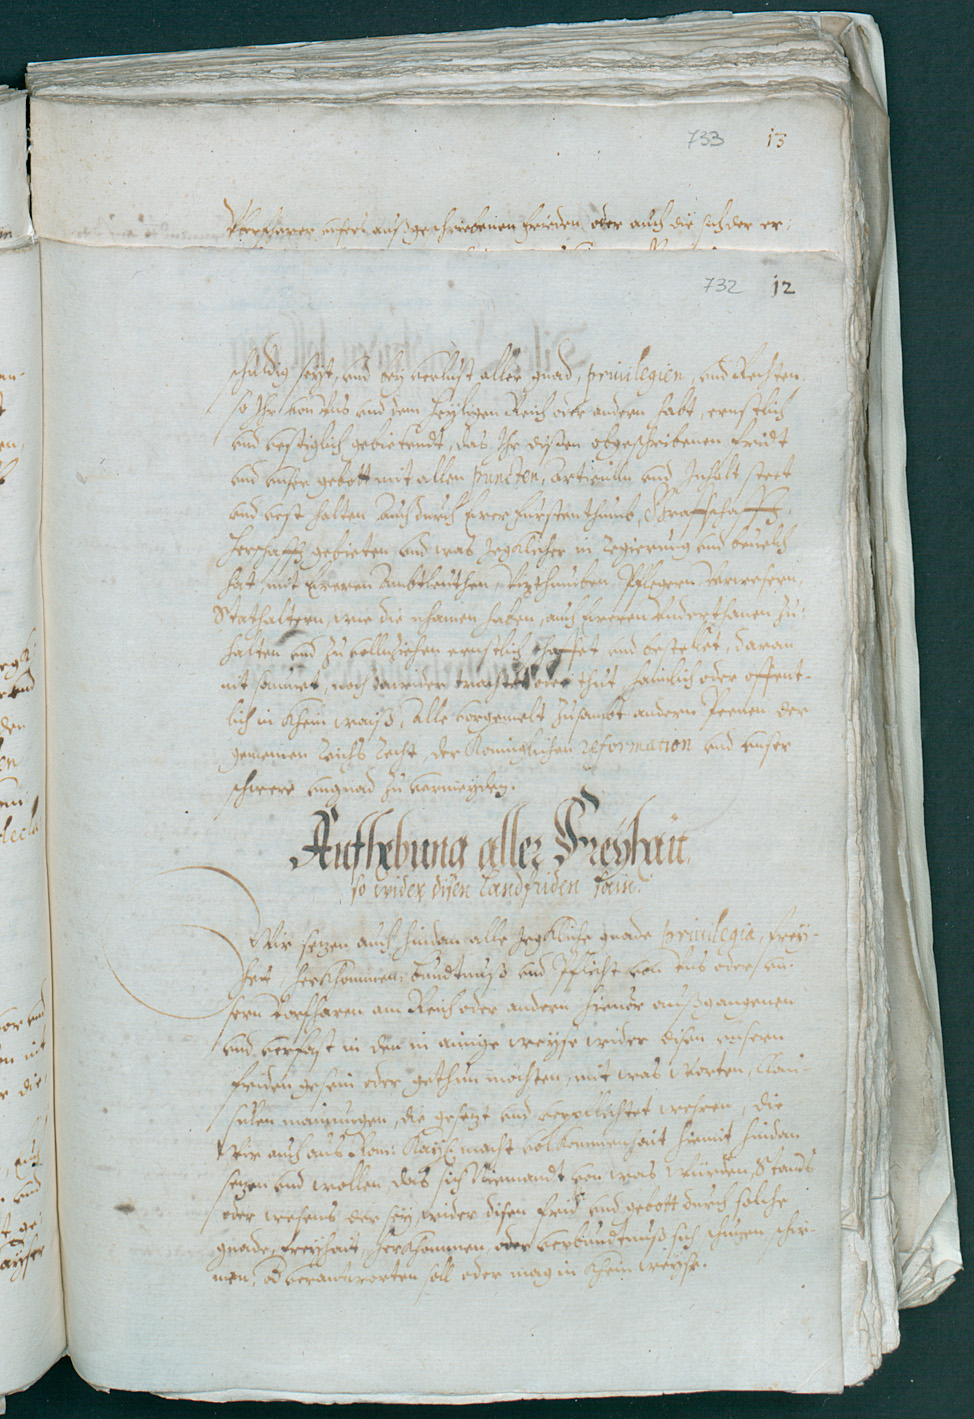 733 13
Vorfharer unsers außgeschriebenen frieden, oder auch die sich der er:
732 12
schuldig seyt, und bey verlust aller gnad, priuilegien, und Rechten
so Ihr von Uns und dem Heyligen Reich oder andern habt, ernstlich
und vestiglich gebietendt, das Ihr disen obgeschribenen fridt
und unser gebott mit allen puncten, articuln und Inhalt steet
und vest halten auch durch eure Furstenthumb, Graffschafft,
Herschafft gebieten und was yegklicher in Regierung und bevelch
hat, mit eueren Ambtleuthen, Vizthumben, Pflegern, Verwesern,
Stathaltern, wie die nhamen haben, auch eueren Underthanen zu
halten und zu volnziehen ernstlich schaffet und bestellet, daran
nit saumet, noch darwider trachtet oder thut haimlich oder offent-
lich in khein waiß, Alle vorgemelt zusambt andern Peenen der
gemeinen Reichs Recht, der Königlichen reformation und unser
schwere ungnad zu vermeyden.
Aufhebung aller Freyhait
so wider disen Landfriden sein.
Wir setzen auch hindan alle yegkliche gnade priuilegia, frey-
heit, Herkhommen, Bundtnuß und Pflicht von Uns oder un-
sern Vorfharen am Reich oder andern hieuor außgangenen
und verfast in den in ainige weyse wider disen unsern
friden gesein oder gethun möchten, mit was Worten, Clau-
sulen mainungen, die gesetzt und verpflichtet wehren, die
Wir auch aus Rom: Kay: macht volkommenhait hiemit hindan
setzen und wollen, das sich Niemandt von was Würden, Stands
oder wesens der sey, wider disen frid und gebott durch solche
gnade, freyhait, herkhommen oder verbundtnuß sich schuzen, schir-
men, od verantworten soll oder mag in khein weyse.